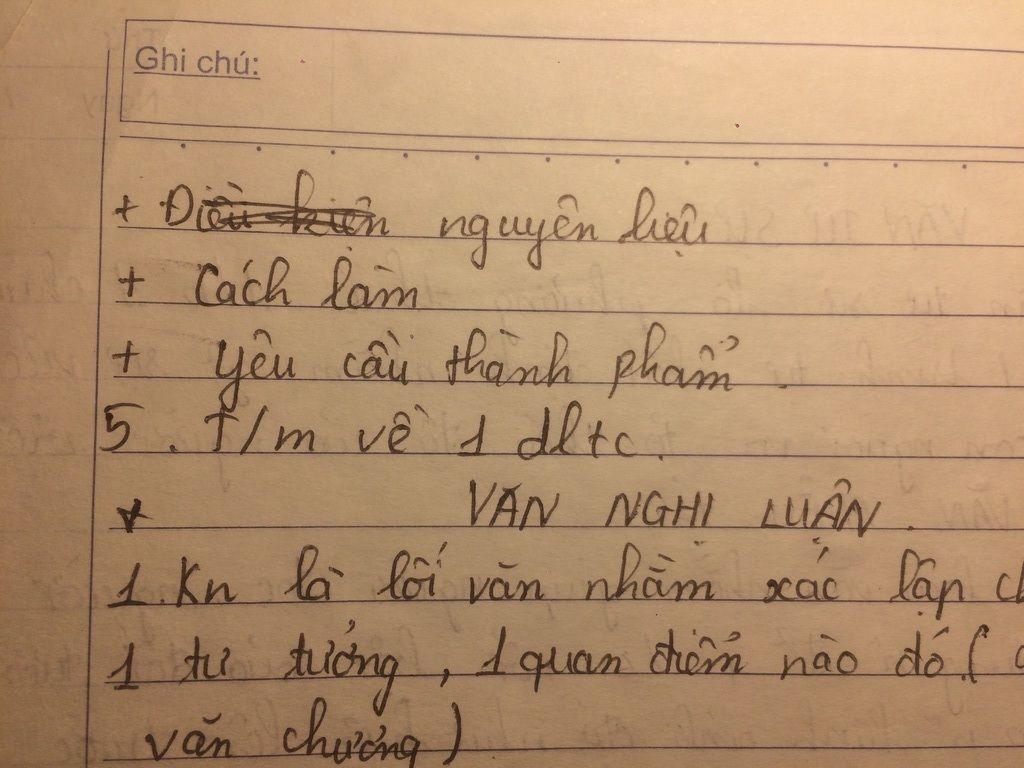 Ghi chú:
+ Điều kiện nguyên liệu
+ Cách làm
+ yêu cầu thành phẩm.
5. T/m về 1 dltc.
* VĂN NGHỊ LUẬN.
1. Kn là lối văn nhằm xác lập
1 tư tưởng, 1 quan điểm nào đó. (
văn chương)